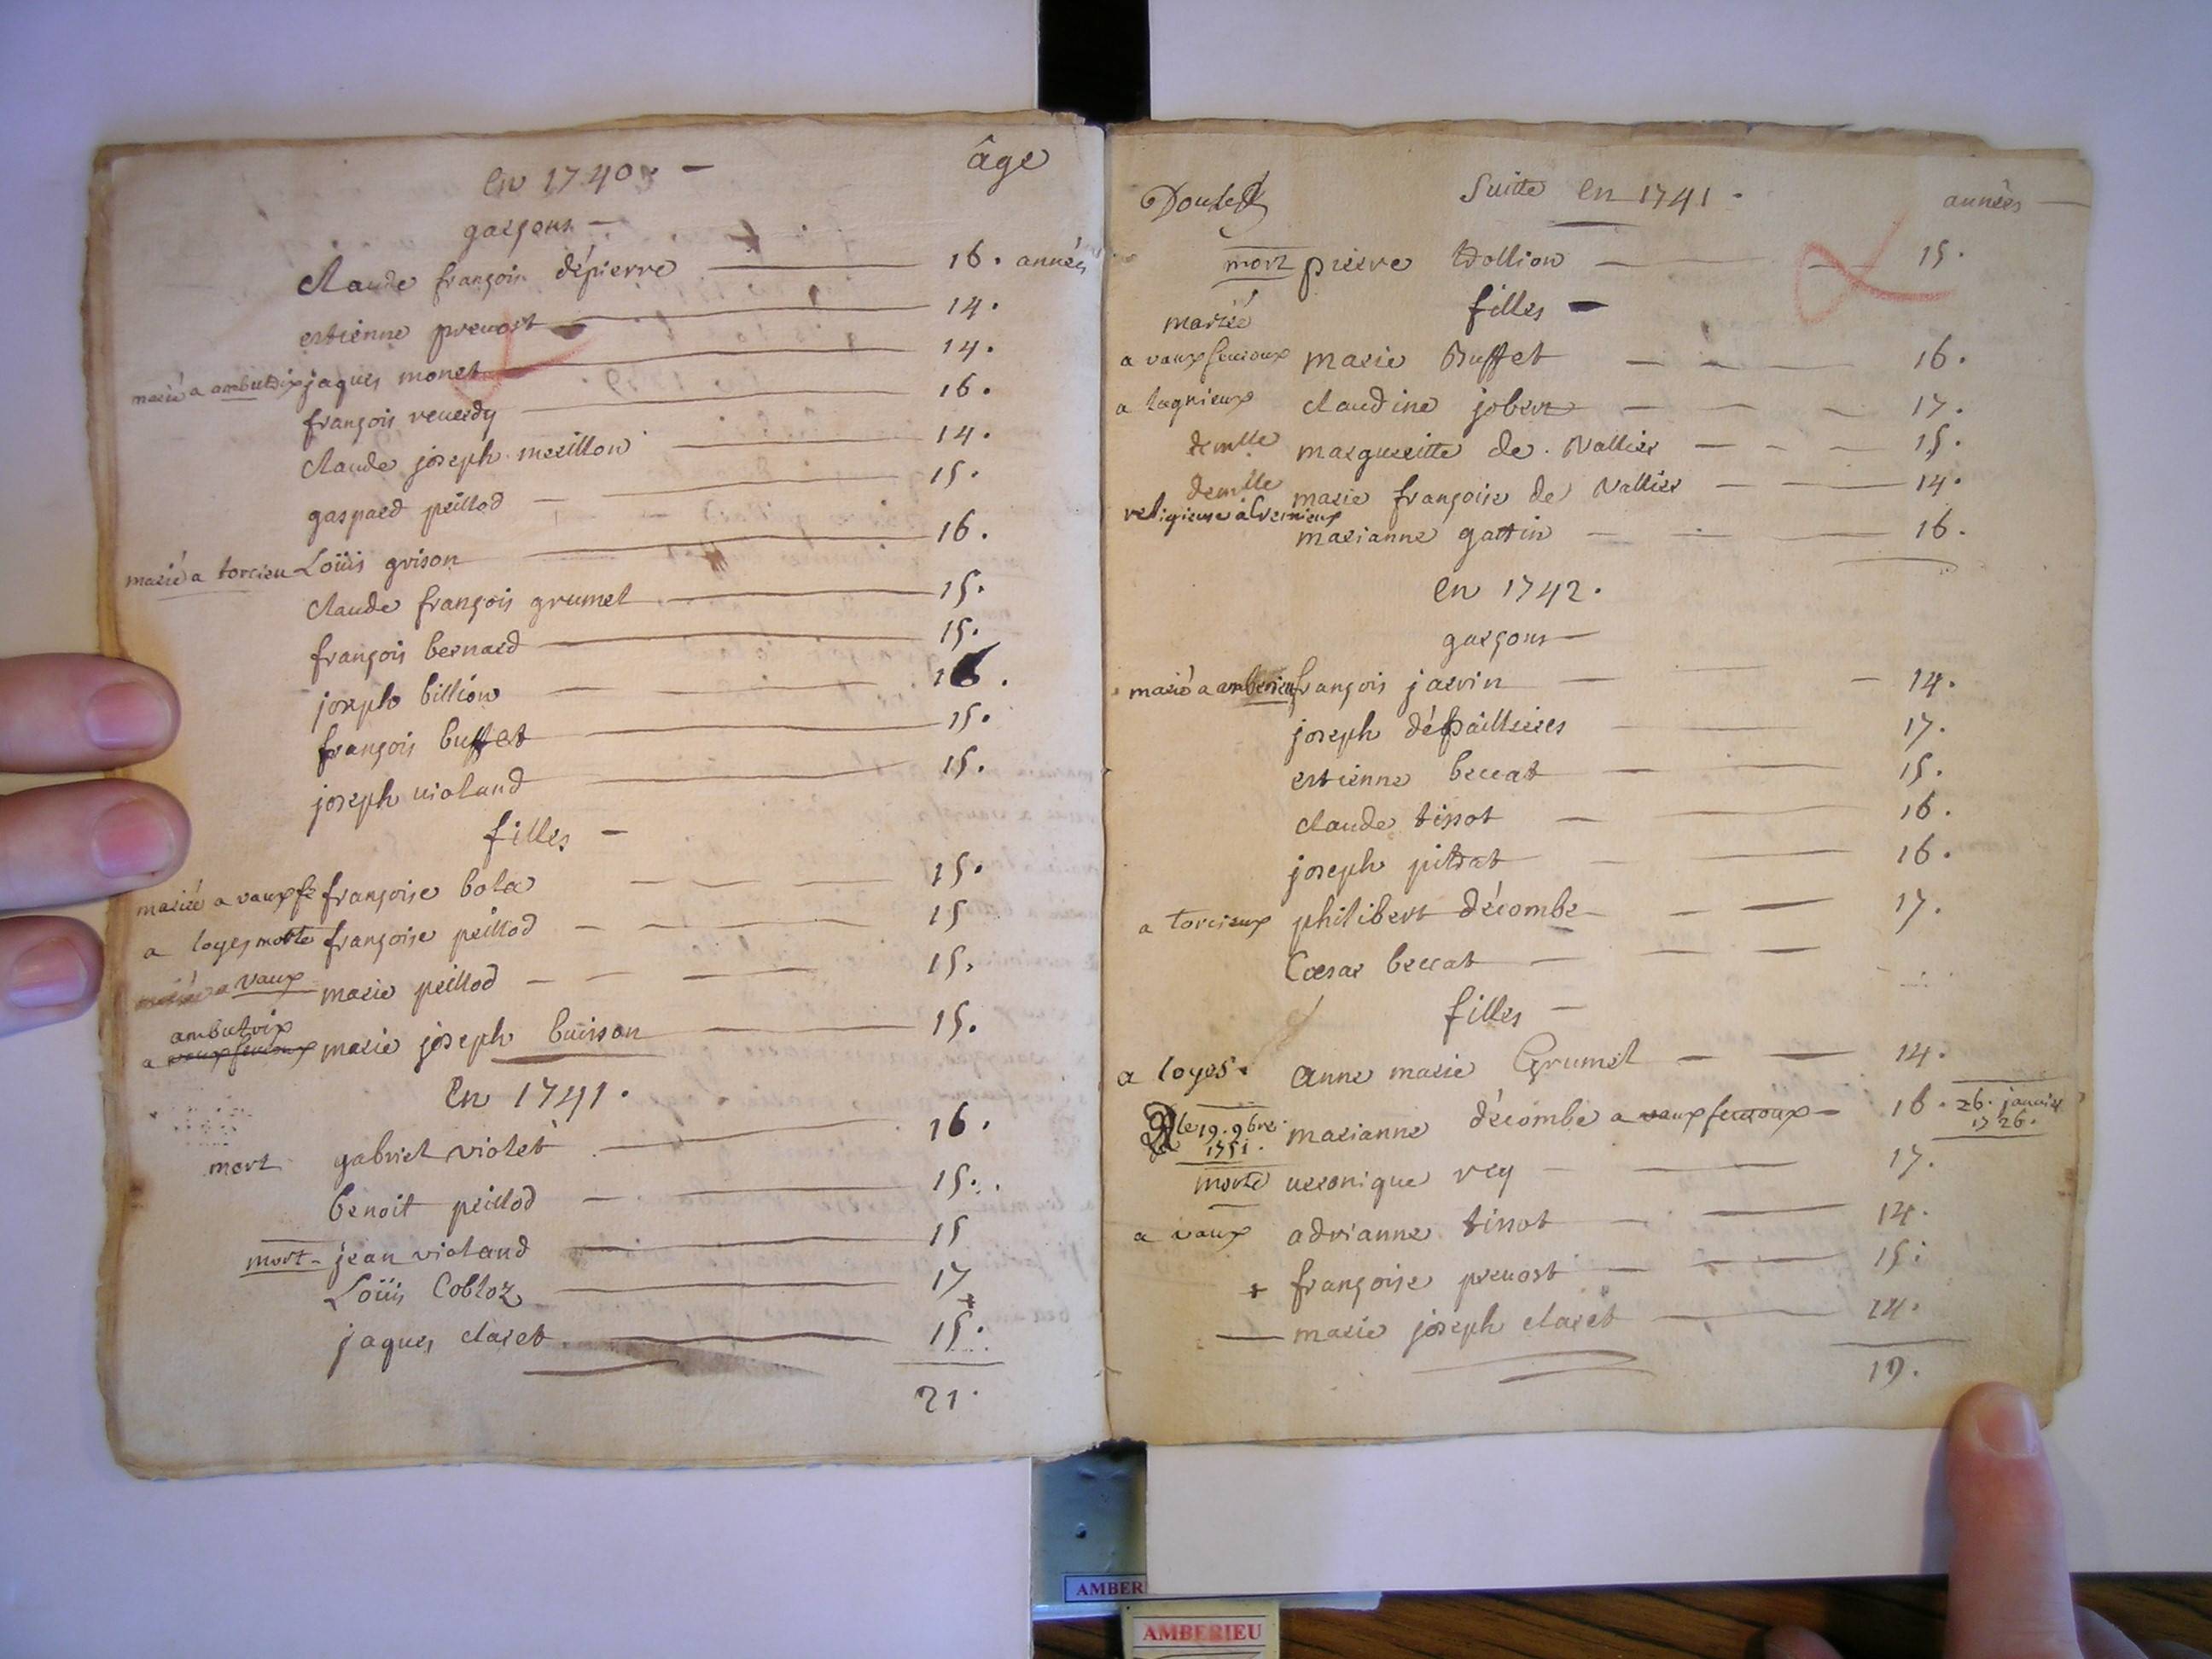 En 1740 - âge
garçons -
claude françois dépierre 16. années
estienne preuost 14.
marié a ambutrix jaques monet 14.
françois reuerdy 16.
claude joseph merillon 14.
gaspard peillod 15.
marié a torcieu Loüis grison 16.
claude françois grumet 15.
françois bernard 15.
joseph billion 16.
françois buffet 15.
joseph uioland 15.
filles -
mariée a vauxfe françoise bola 15.
a loyes morte françoise peillod 15
mariée a vaux marie peillod 15.
ambutrix
a vauxfeuroux marie joseph buisson 15.
En 1741.
mort gabriel violet 16.
benoit peillod 15.
mort - jean violand 15
Loüis Cobloz 17
jaques claret 15.
21.
Suitte en 1741. années
mort pierre 15.
filles -
mariée
a vauxfeuroux marie Buffet 16.
a lagnieux claudine jobert 17.
demlle margueritte de. Vallier 15.
demlle marie françoise de Vallier 14.
religieuse a Cremieux
marianne gattin 16.
En 1742.
garçons -
marié a amberieu françois jarvin 14.
joseph 17.
estienne beccat 15.
claude tissot 16.
joseph pitrat 16.
a torcieux philibert décombe 17.
Cœsar beccat
filles -
a loyes. anne marie Grumet 14.
le 19. 9bre. 1751. marianne décombe a vauxfeuroux - 16. 26. janvier 1726.
morte ueronique rey 17.
a vaux adrianne tissot 14.
+ françoise preuost 15.
marie joseph claret 14.
19.
AMBER
AMBERIEU